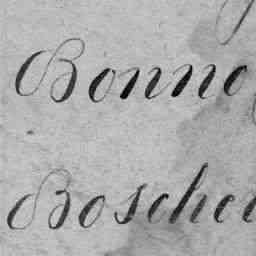 Bonno
Bosche